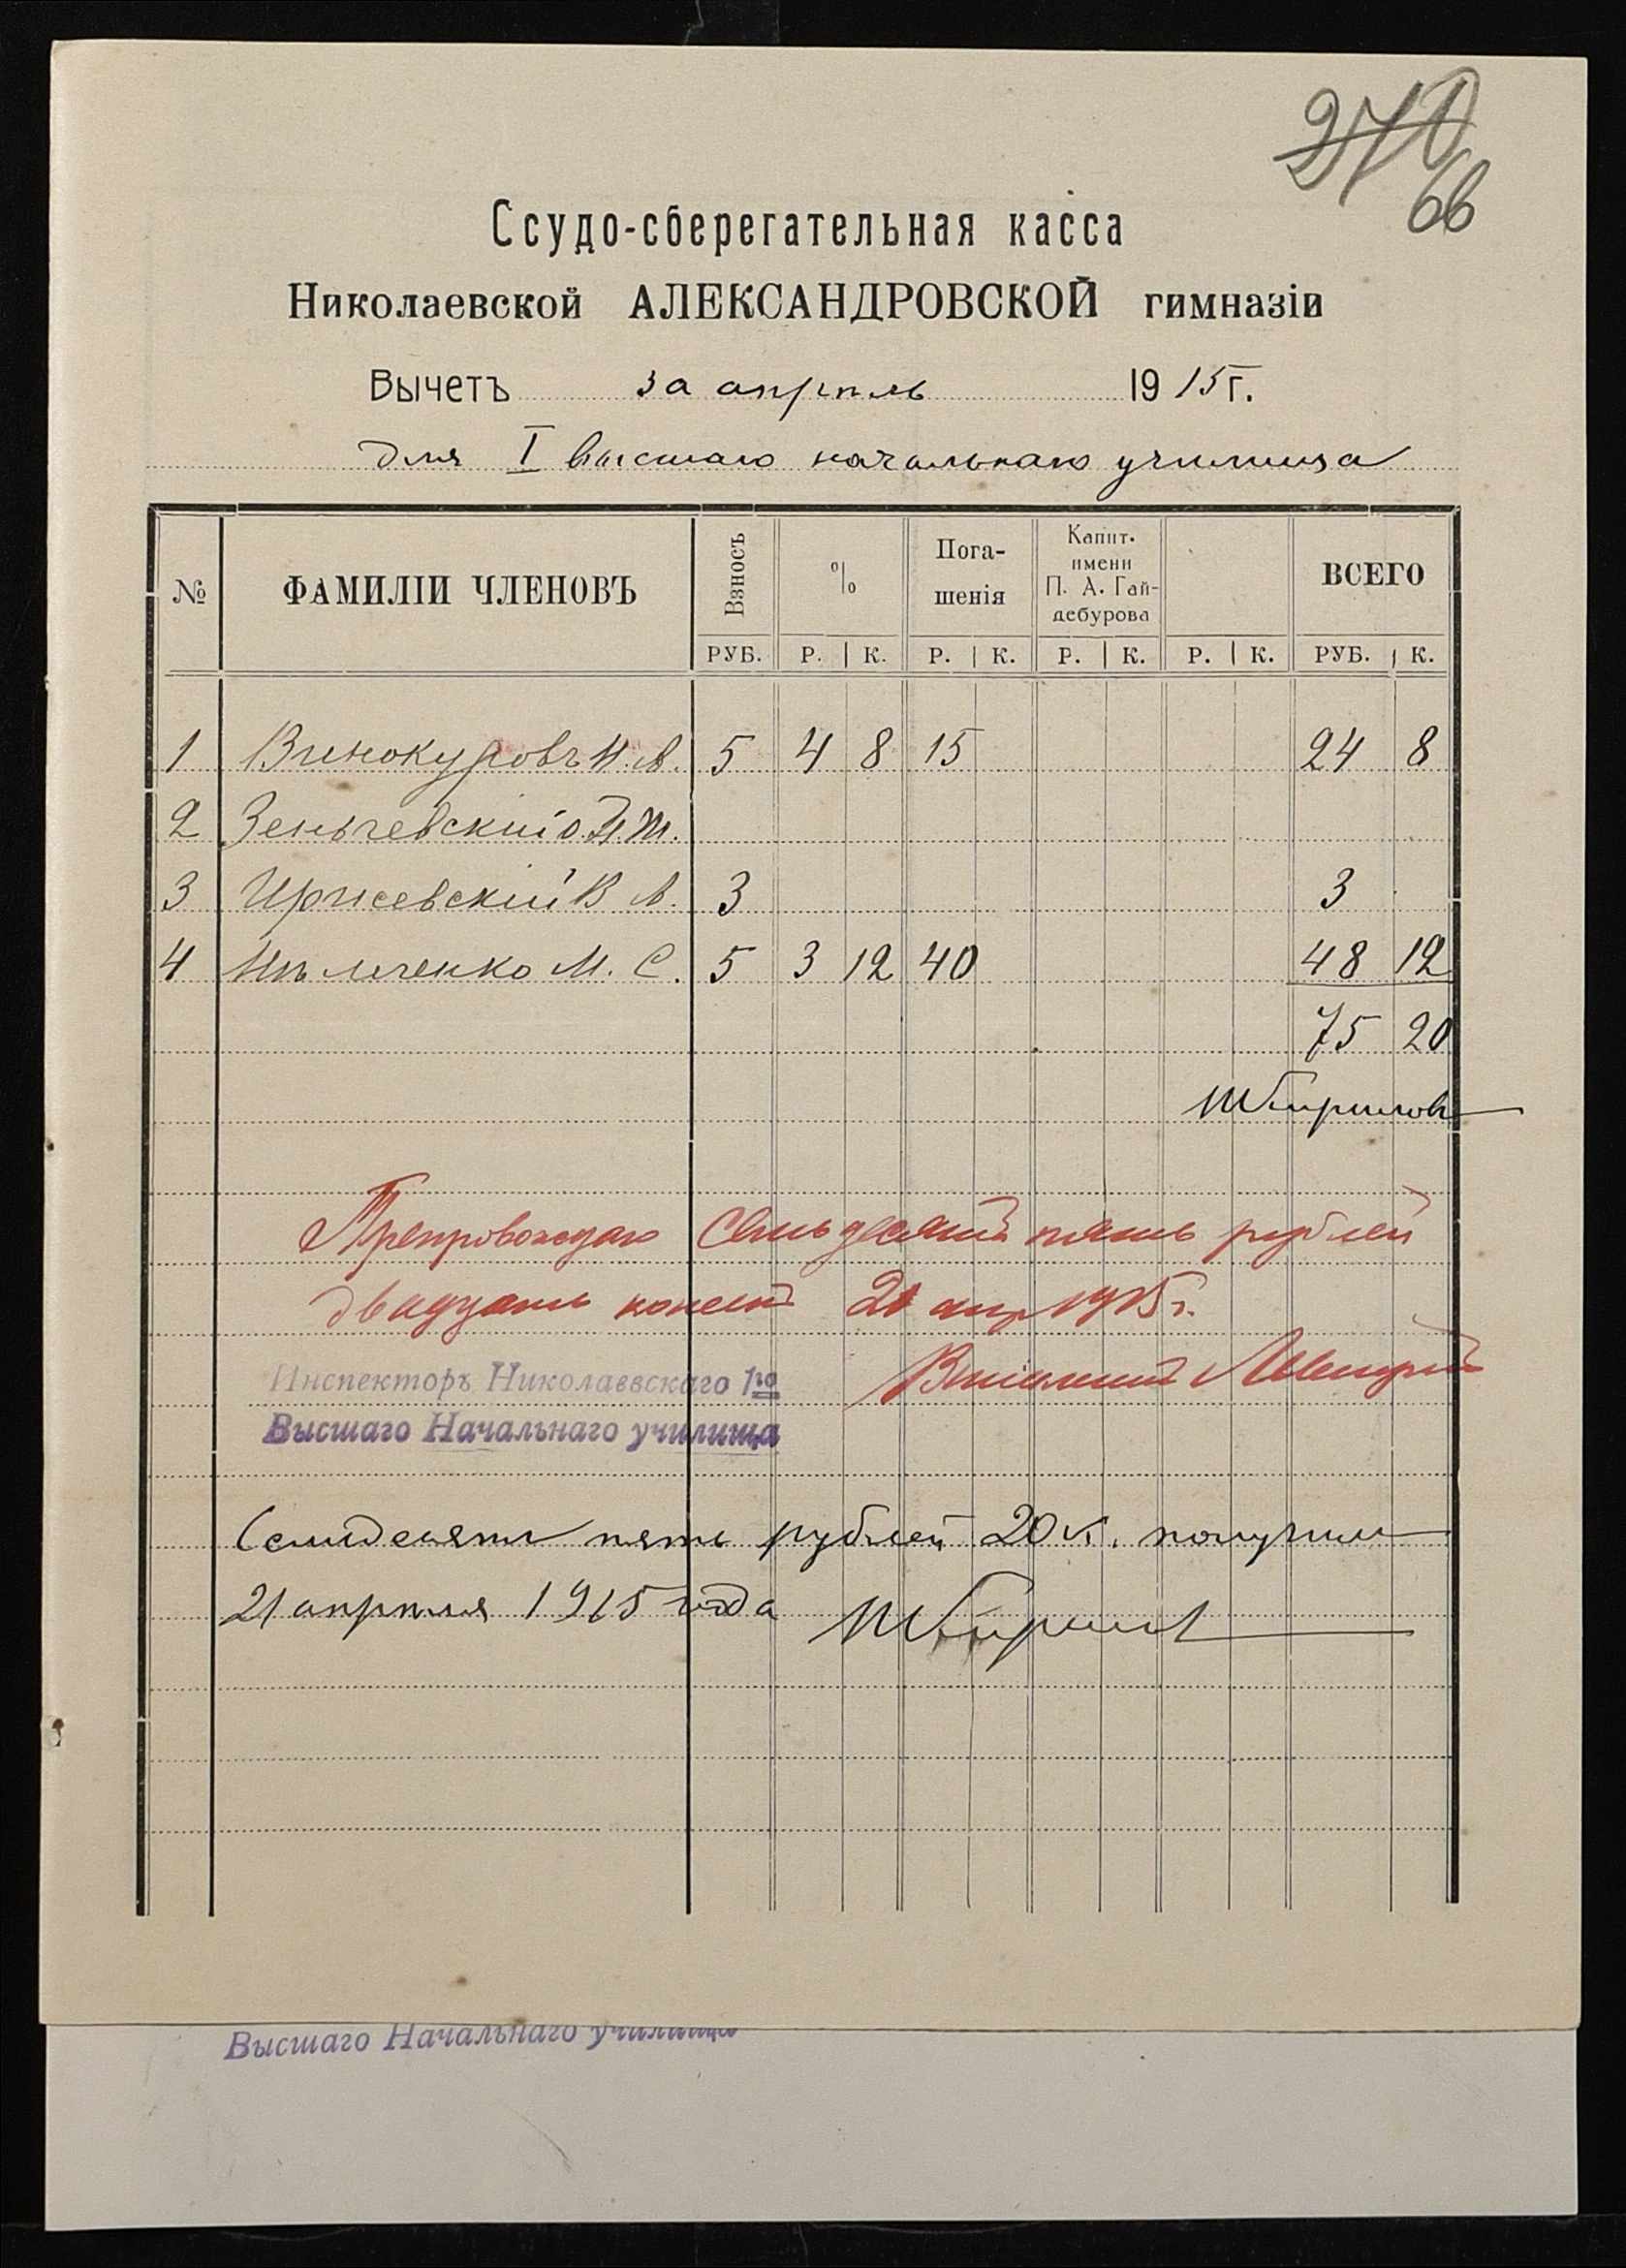 270
66
Ссудо-сберегательная касса
Николаевской АЛЕКСАНДРОВСКОЙ гимназіи
Вычетъ за апрѣль 1915 г.
для I высшаго начальнаго училища
№ ФАМИЛІИ ЧЛЕНОВЪ Взносъ % Пога-шенія Капит. имени П. А. Гай-дебурова ВСЕГО
РУБ. Р. К. Р. К. Р. К. Р. К. РУБ. К.
1 Винокуровъ 5 4 8 15 24 8
2
3 В 3 3
4 М. С. 5 3 12 40 48 12
75 20
Препровождаю семьдесятъ пять рублей
двадцать копеекъ 21 апр 1915 г.
Инспекторъ Николаевскаго 1го
Высшаго Начальнаго училища
Семьдесятъ пять рублей 20 к. получилъ
21 апрѣля 1915 года
Высшаго Начальнаго училища